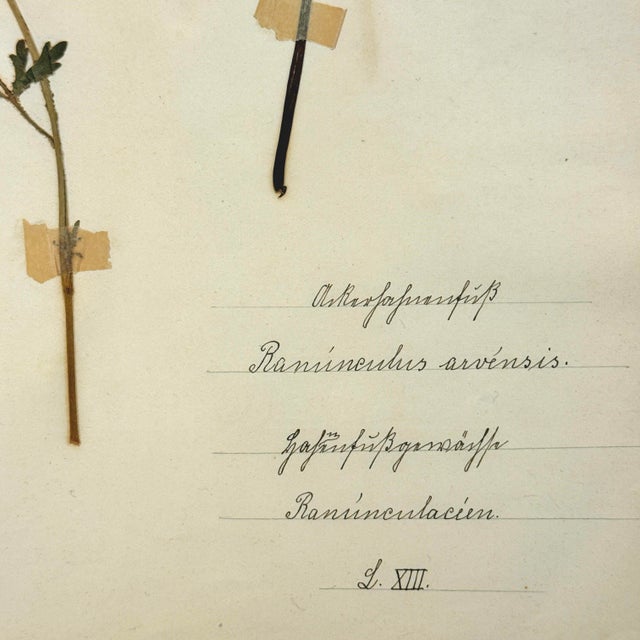 Ackerhahnenfuß
Ranúnculus arvénsis.
Hahnenfußgewächse
Ranúnculacéen.
L. XIII.